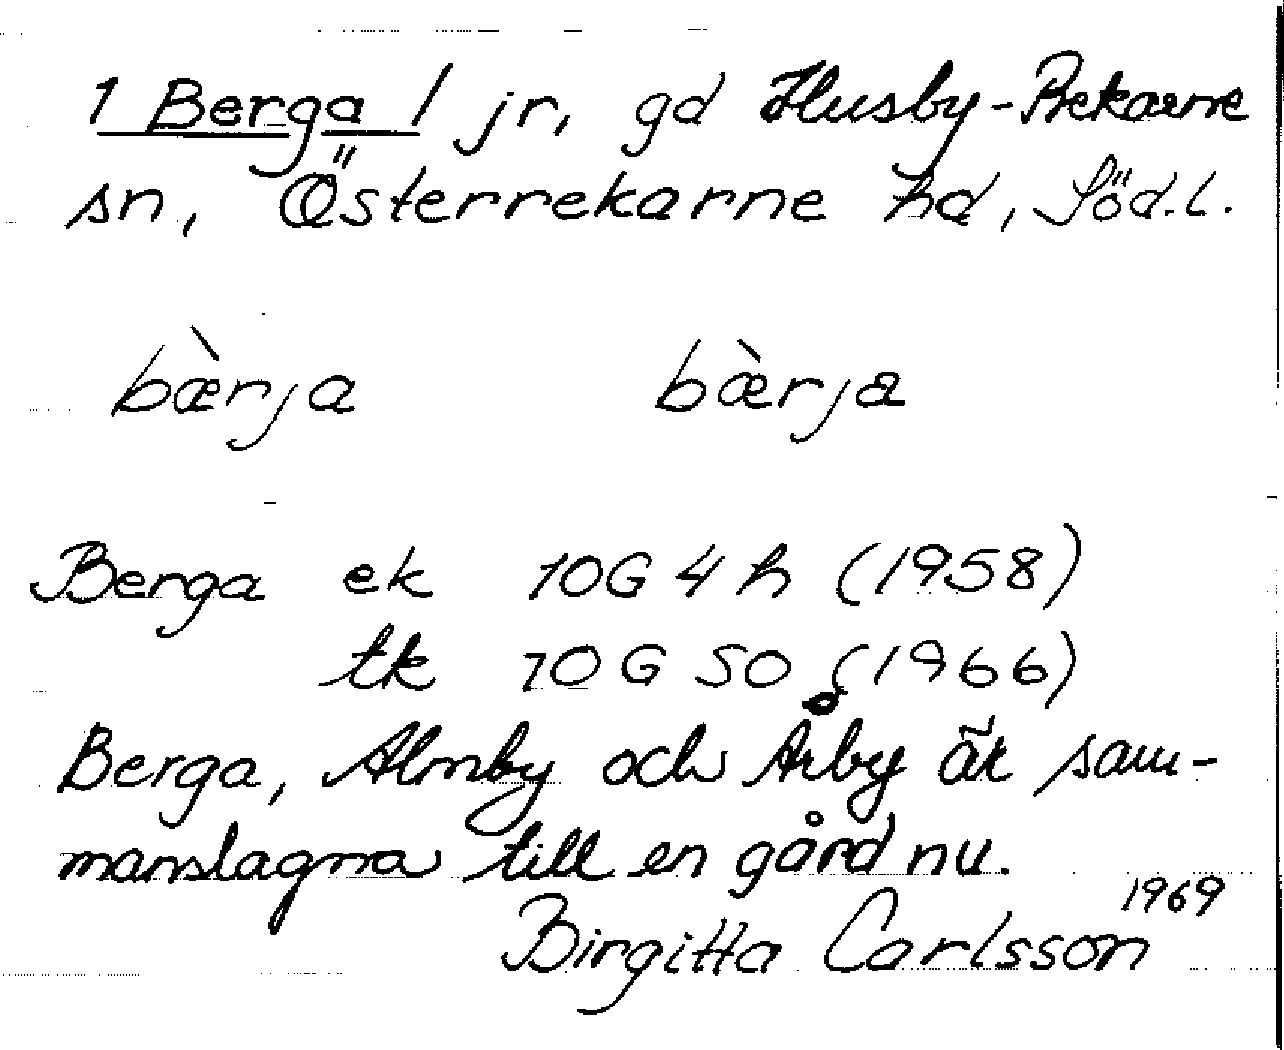 1 Berga / jr, gd Husby-Rekarne
sn, Österrekarne hd, Söd.l.
bæ̀rja bæ̀rja
Berga ek 10G 4h (1958)
tk 10G SO (1966)
Berga, Almby och Årby är sam-
manslagna till en gård nu.
1969
Birgitta Carlsson